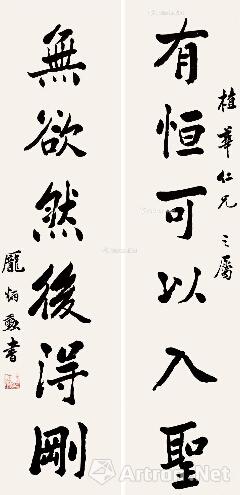 桂華仁兄之屬
有恒可以入聖
無欲然後得剛
龐炳勳書